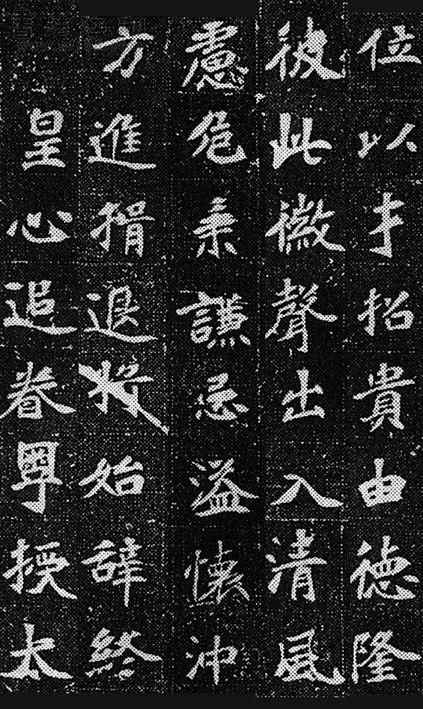 位以才招貴由德隆
彼此徽聲出入清風
慮危秉謙忌溢懷沖
方進捐退將始辭終
皇心追眷粵授太